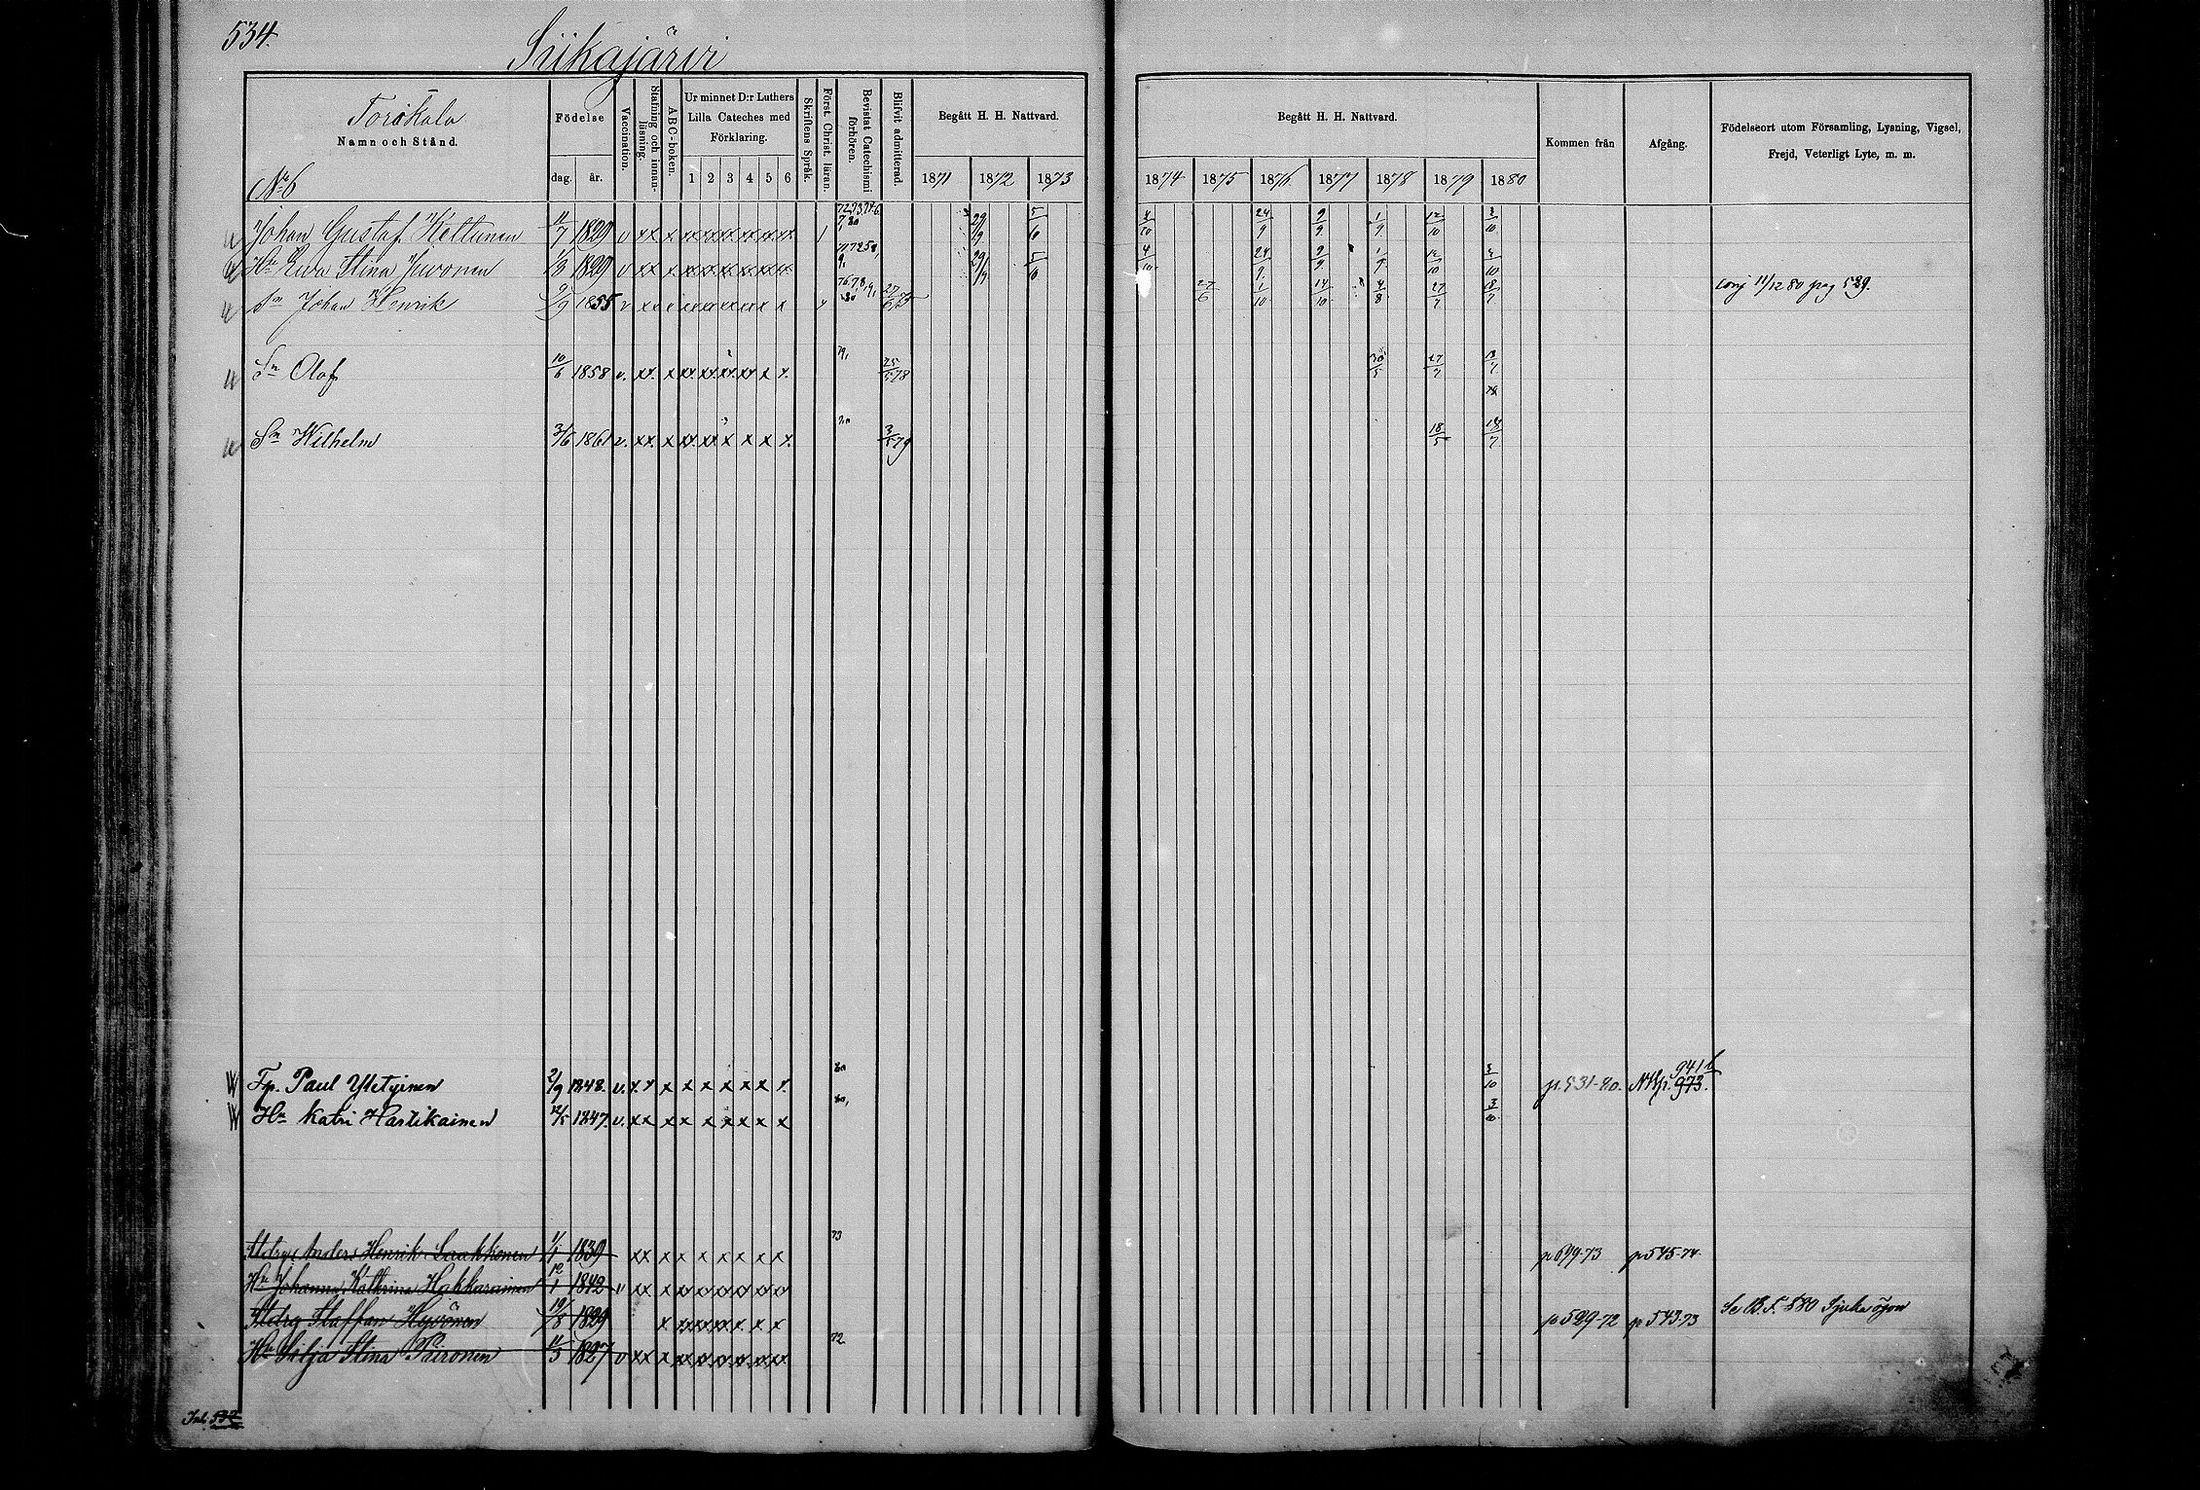 534.
Siikajärvi
Torikala
Namn och Stånd.
N:o 6
Födelse
dag. år.
Vaccination.
Stafning och innan-läsning.
ABC-boken.
Ur minnet D:r Luthers
Lilla Cateches med
Förklaring.
1 2 3 4 5 6
Skriftens Språk.
Först. Christ. läran.
Bevistat Catechismi förhören.
Blifvit admitterad.
Begått H. H. Nattvard.
1871 1872 1873
Begått H. H. Nattvard.
1874 1875 1876 1877 1878 1879 1880
Kommen från
Afgång.
Födelseort utom Församling, Lysning, Vigsel,
Frejd, Veterligt Lyte, m. m.
Johan Gustaf Keltunen 11/7 1829 v xx x xx xx xx xx xx xx 29/9 5/10 4/10 24/9 9/9 1/9 12/10 3/10
Hu Eva Stina Juvonen 1/3 1829 v xx x xx xx xx xx xx xx 29/9 5/10 4/10 24/9 9/9 1/9 12/10 3/10
Sn Johan Henrik 9/9 1855 v xx x 27/6 75 27/6 1/10 14/10 4/8 27/7 18/7 conj 11/12 80 pag 529.
Sn Olof 10/6 1858 v. xx. x xx xx xx xx x x. 79, 25/5 78 30/5 27/7 18/7
Sn Wilhelm 3/6 1861 v. xx. x xx. xx x x x x. 3/5 79 18/5 18/7
Tp. Paul Yletyinen 2/9 1848. v. x x x x x x x x x. 80 3/10 p. 531-80. 941 b 973.
Hu Katri Hartikainen 12/5 1847. v. xx x x x x x x x 80, 3/10
Anders Henrik Laakkonen 1/1 1839 xx x x x x x x x 73 p 699-73 p 545-74
Hu Johanna Kathrina Hakkarainen 12/1 1842 v xx x
Staffan Hyvönen 19/8 1829 x p 529-72 p 543-73 Se B. F. 880 Sjuka ögon
Hu Selja Stina Piironen 11/5 1827 v xx x 72